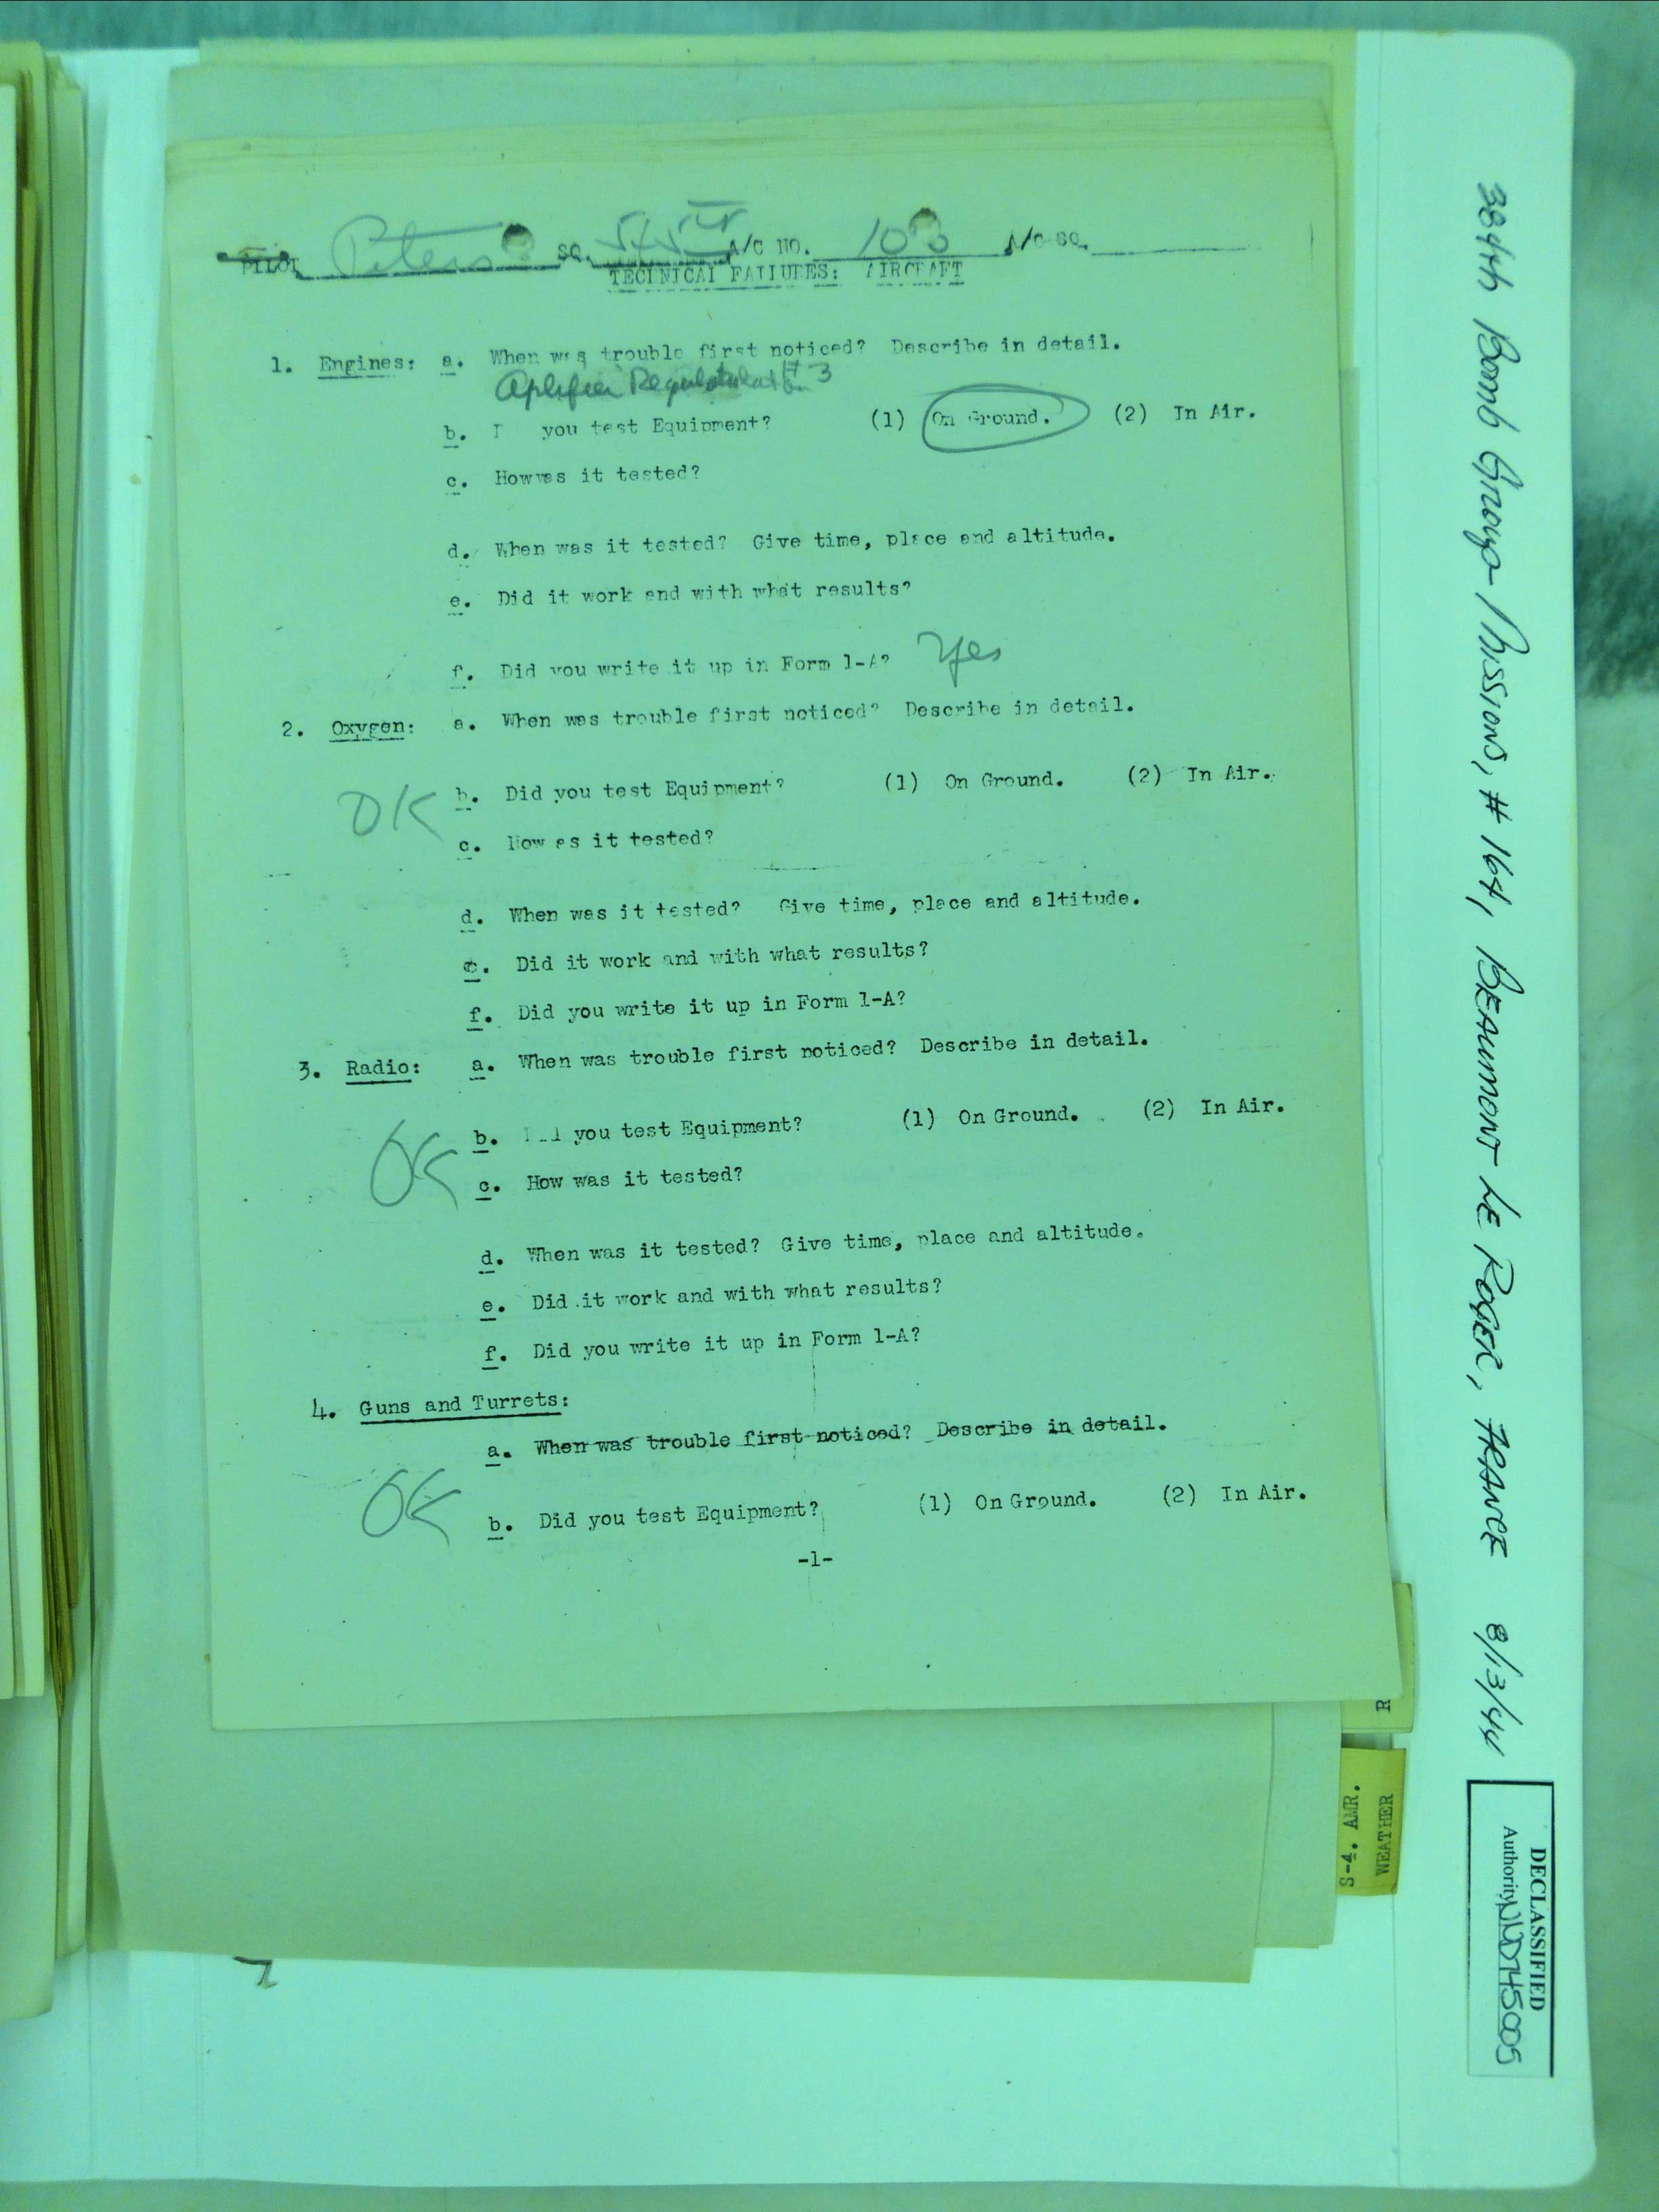 PILOT Peters SQ. 545 A/C NO. 103 A/C SQ.
TECHNICAL FAILURES: AIRCRAFT
1. Engines: a. When was trouble first noticed? Describe in detail.
#3
b. you test Equipment? (1) On Ground. (2) In Air.
c. How was it tested?
d. When was it tested? Give time, place and altitude.
e. Did it work and with what results?
f. Did you write it up in Form 1-A? Yes
2. Oxygen: a. When was trouble first noticed? Describe in detail.
OK b. Did you test Equipment? (1) On Ground. (2) In Air.
c. How as it tested?
d. When was it tested? Give time, place and altitude.
e. Did it work and with what results?
f. Did you write it up in Form 1-A?
3. Radio: a. When was trouble first noticed? Describe in detail.
OK b. you test Equipment? (1) On Ground. (2) In Air.
c. How was it tested?
d. When was it tested? Give time, place and altitude.
e. Did it work and with what results?
f. Did you write it up in Form 1-A?
4. Guns and Turrets:
a. When was trouble first noticed? Describe in detail.
OK b. Did you test Equipment? (1) On Ground. (2) In Air.
-1-
R
S-4. AMR.
WEATHER
384th Bomb Group Missions, #164, BEAUMONT LE ROGER, FRANCE 8/13/44
DECLASSIFIED
Authority NND745005